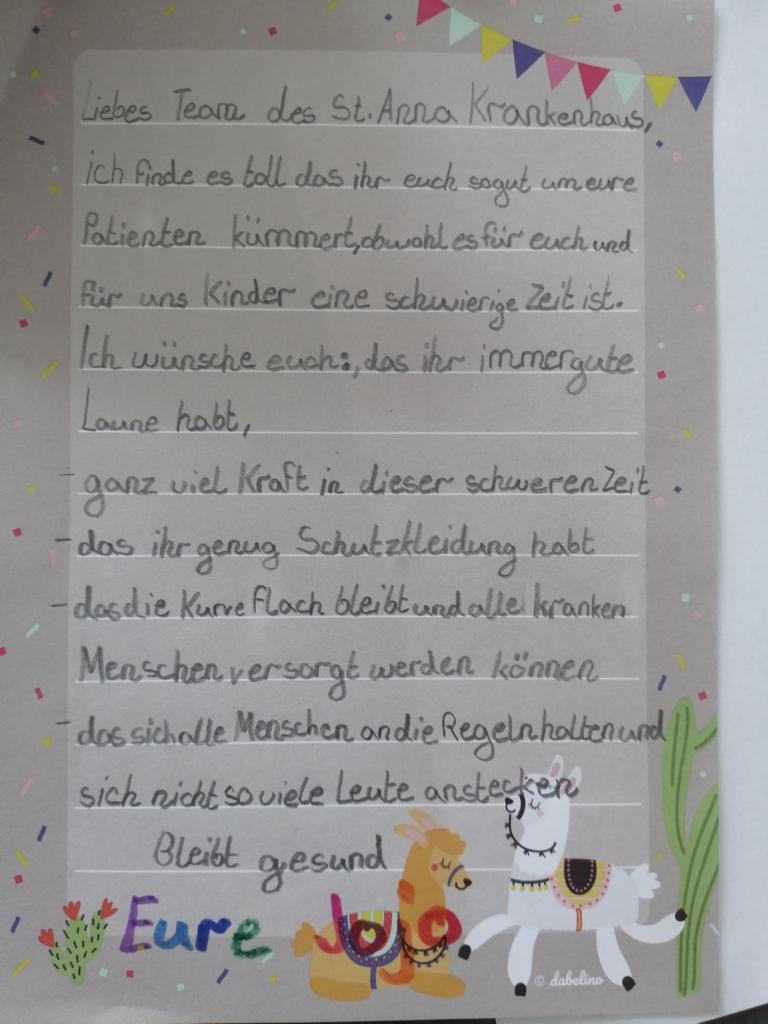 Liebes Team des St. Anna Krankenhaus,
ich finde es toll das ihr euch sogut um eure
Patienten kümmert, obwohl es für euch und
für uns Kinder eine schwierige Zeit ist.
Ich wünsche euch:, das ihr immer gute
Laune habt,
- ganz viel Kraft in dieser schweren Zeit
- das ihr genug Schutzkleidung habt
- das die Kurve flach bleibt und alle kranken
Menschen versorgt werden können
- das sich alle Menschen an die Regeln halten und
sich nicht so viele Leute anstecken
Bleibt gesund
Eure Jojo
© dabelino